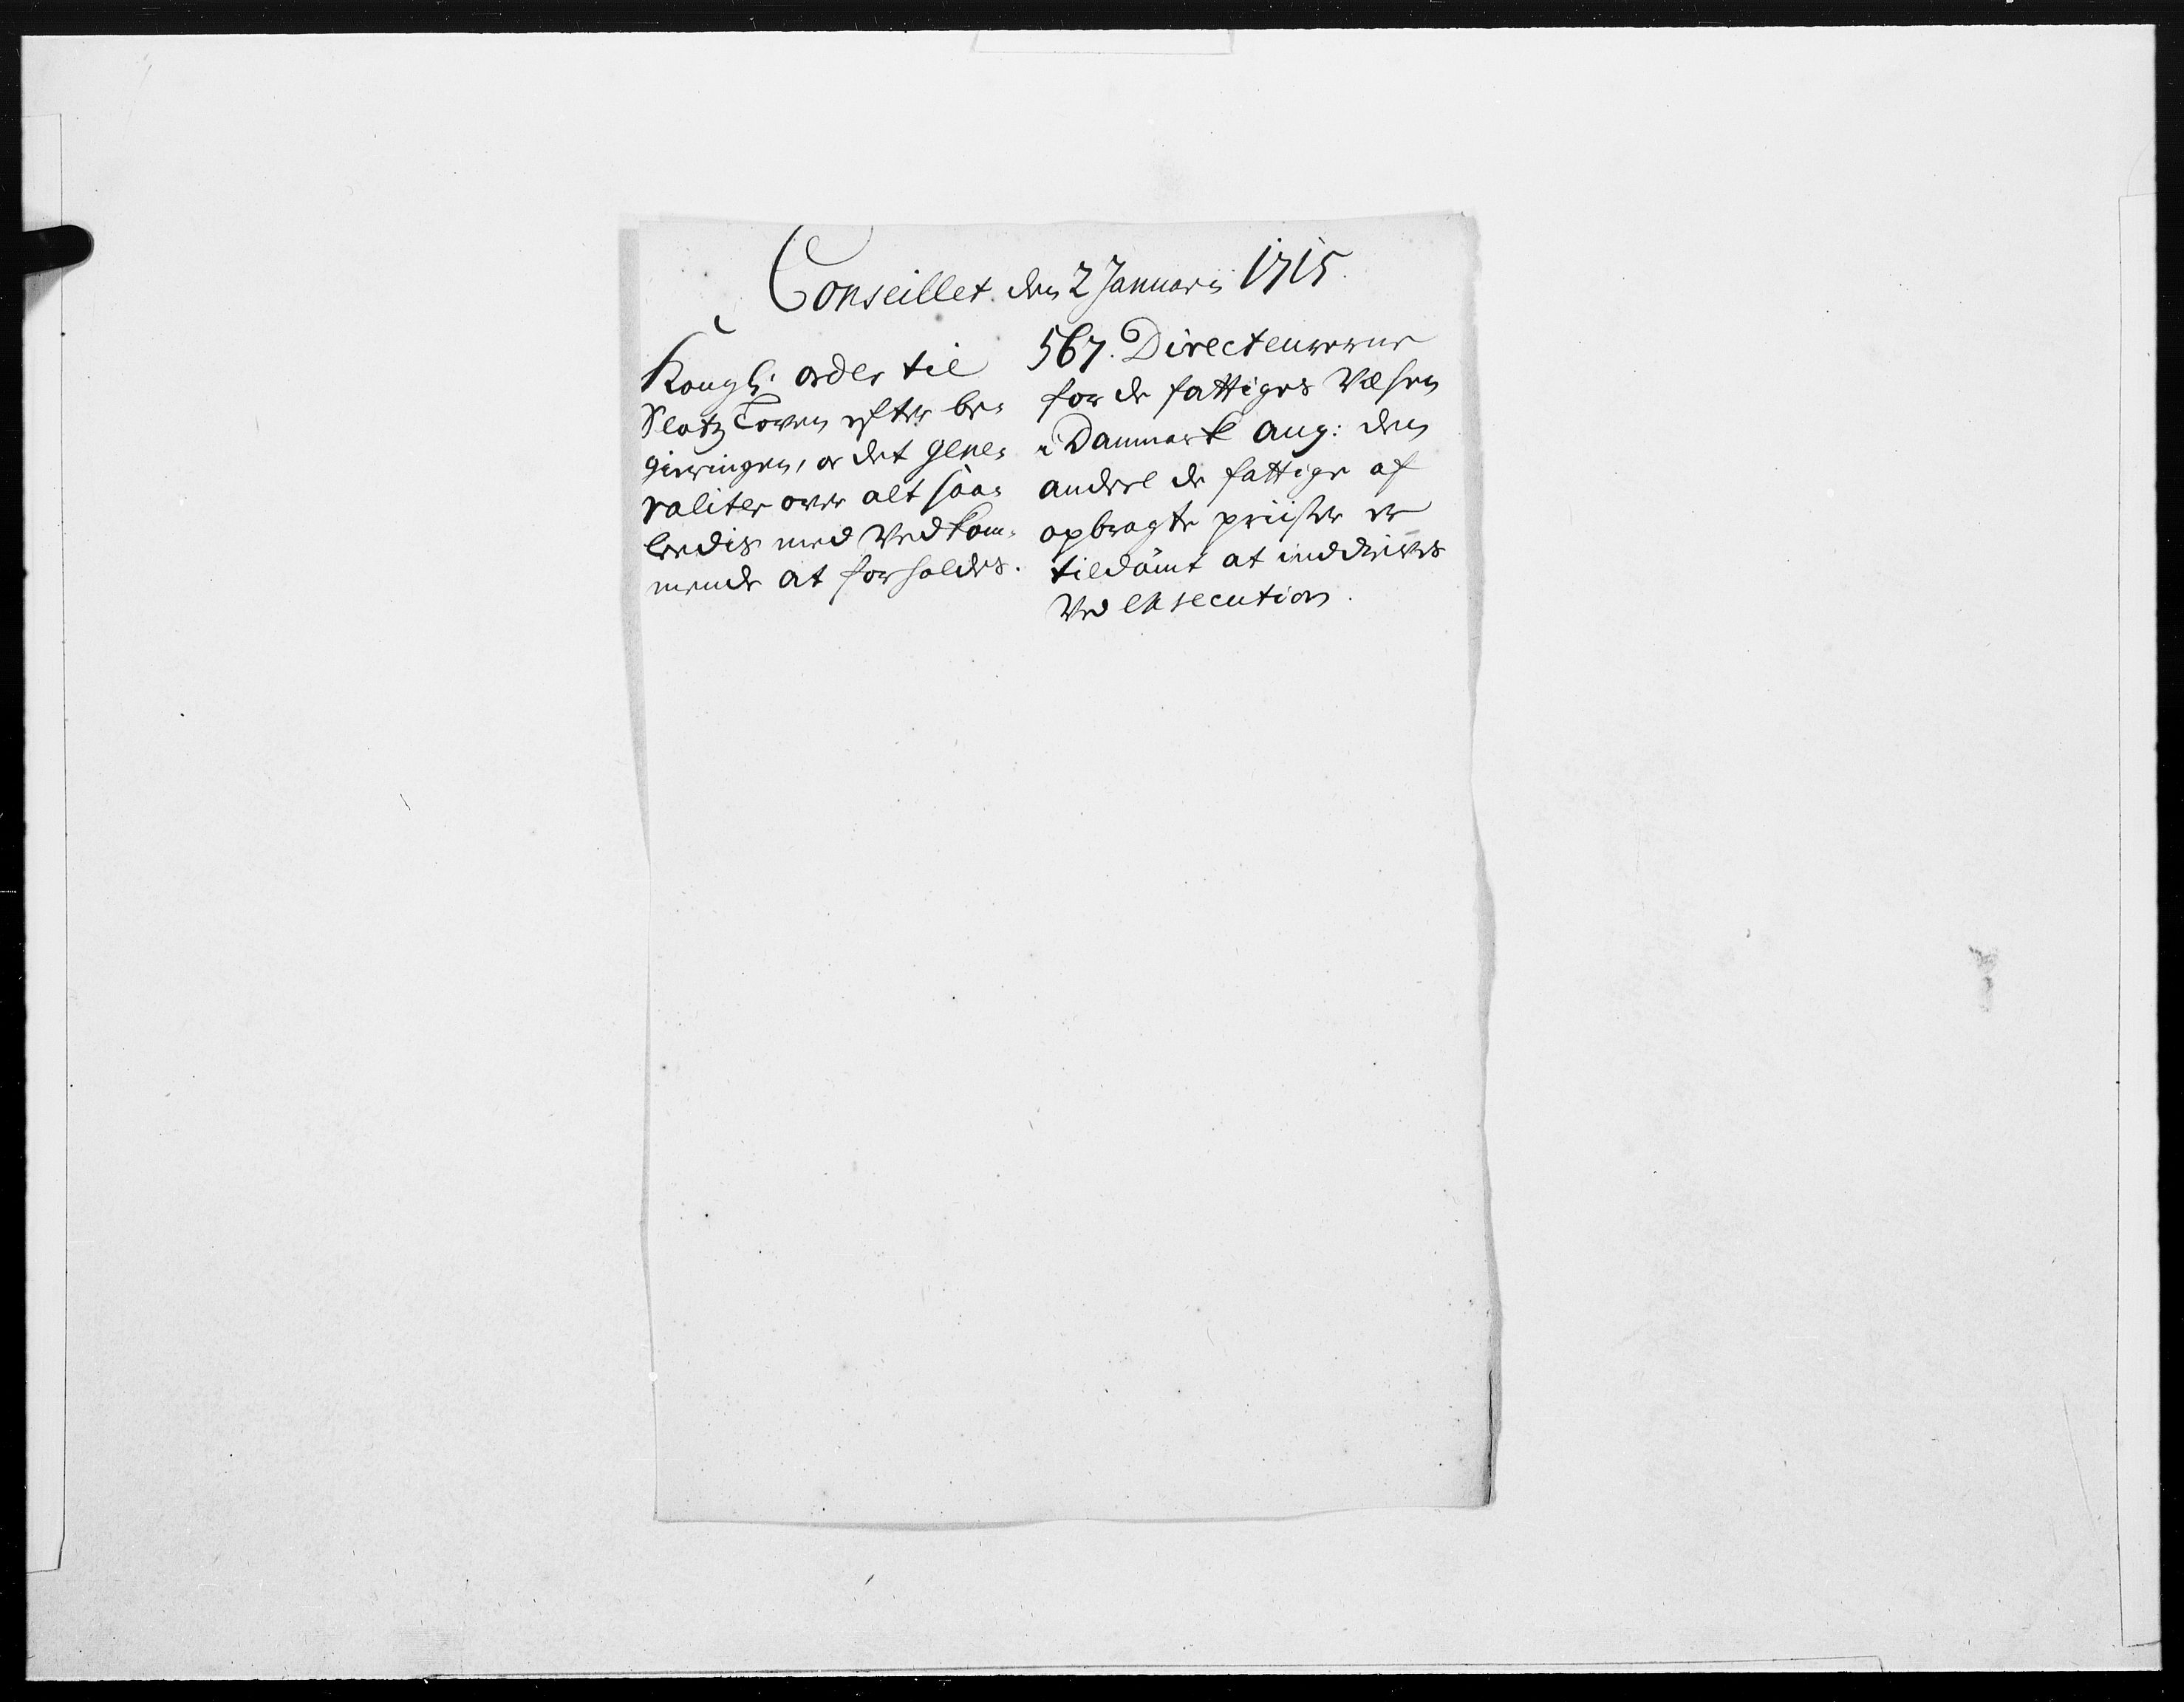 Conseillet den 2 Januarii 1715.
Kongl: order til
Slotz Loven efter be-
gieringen, og det gene-
raliter over alt saa-
ledis med Vedkom-
mende at forholdes.
567. Directeurerne
for de fattiges Wæsen
i Danmark ang: den
andeel de fattige af
opbragte priiser er
tildömt at inddrives
Ved execution.